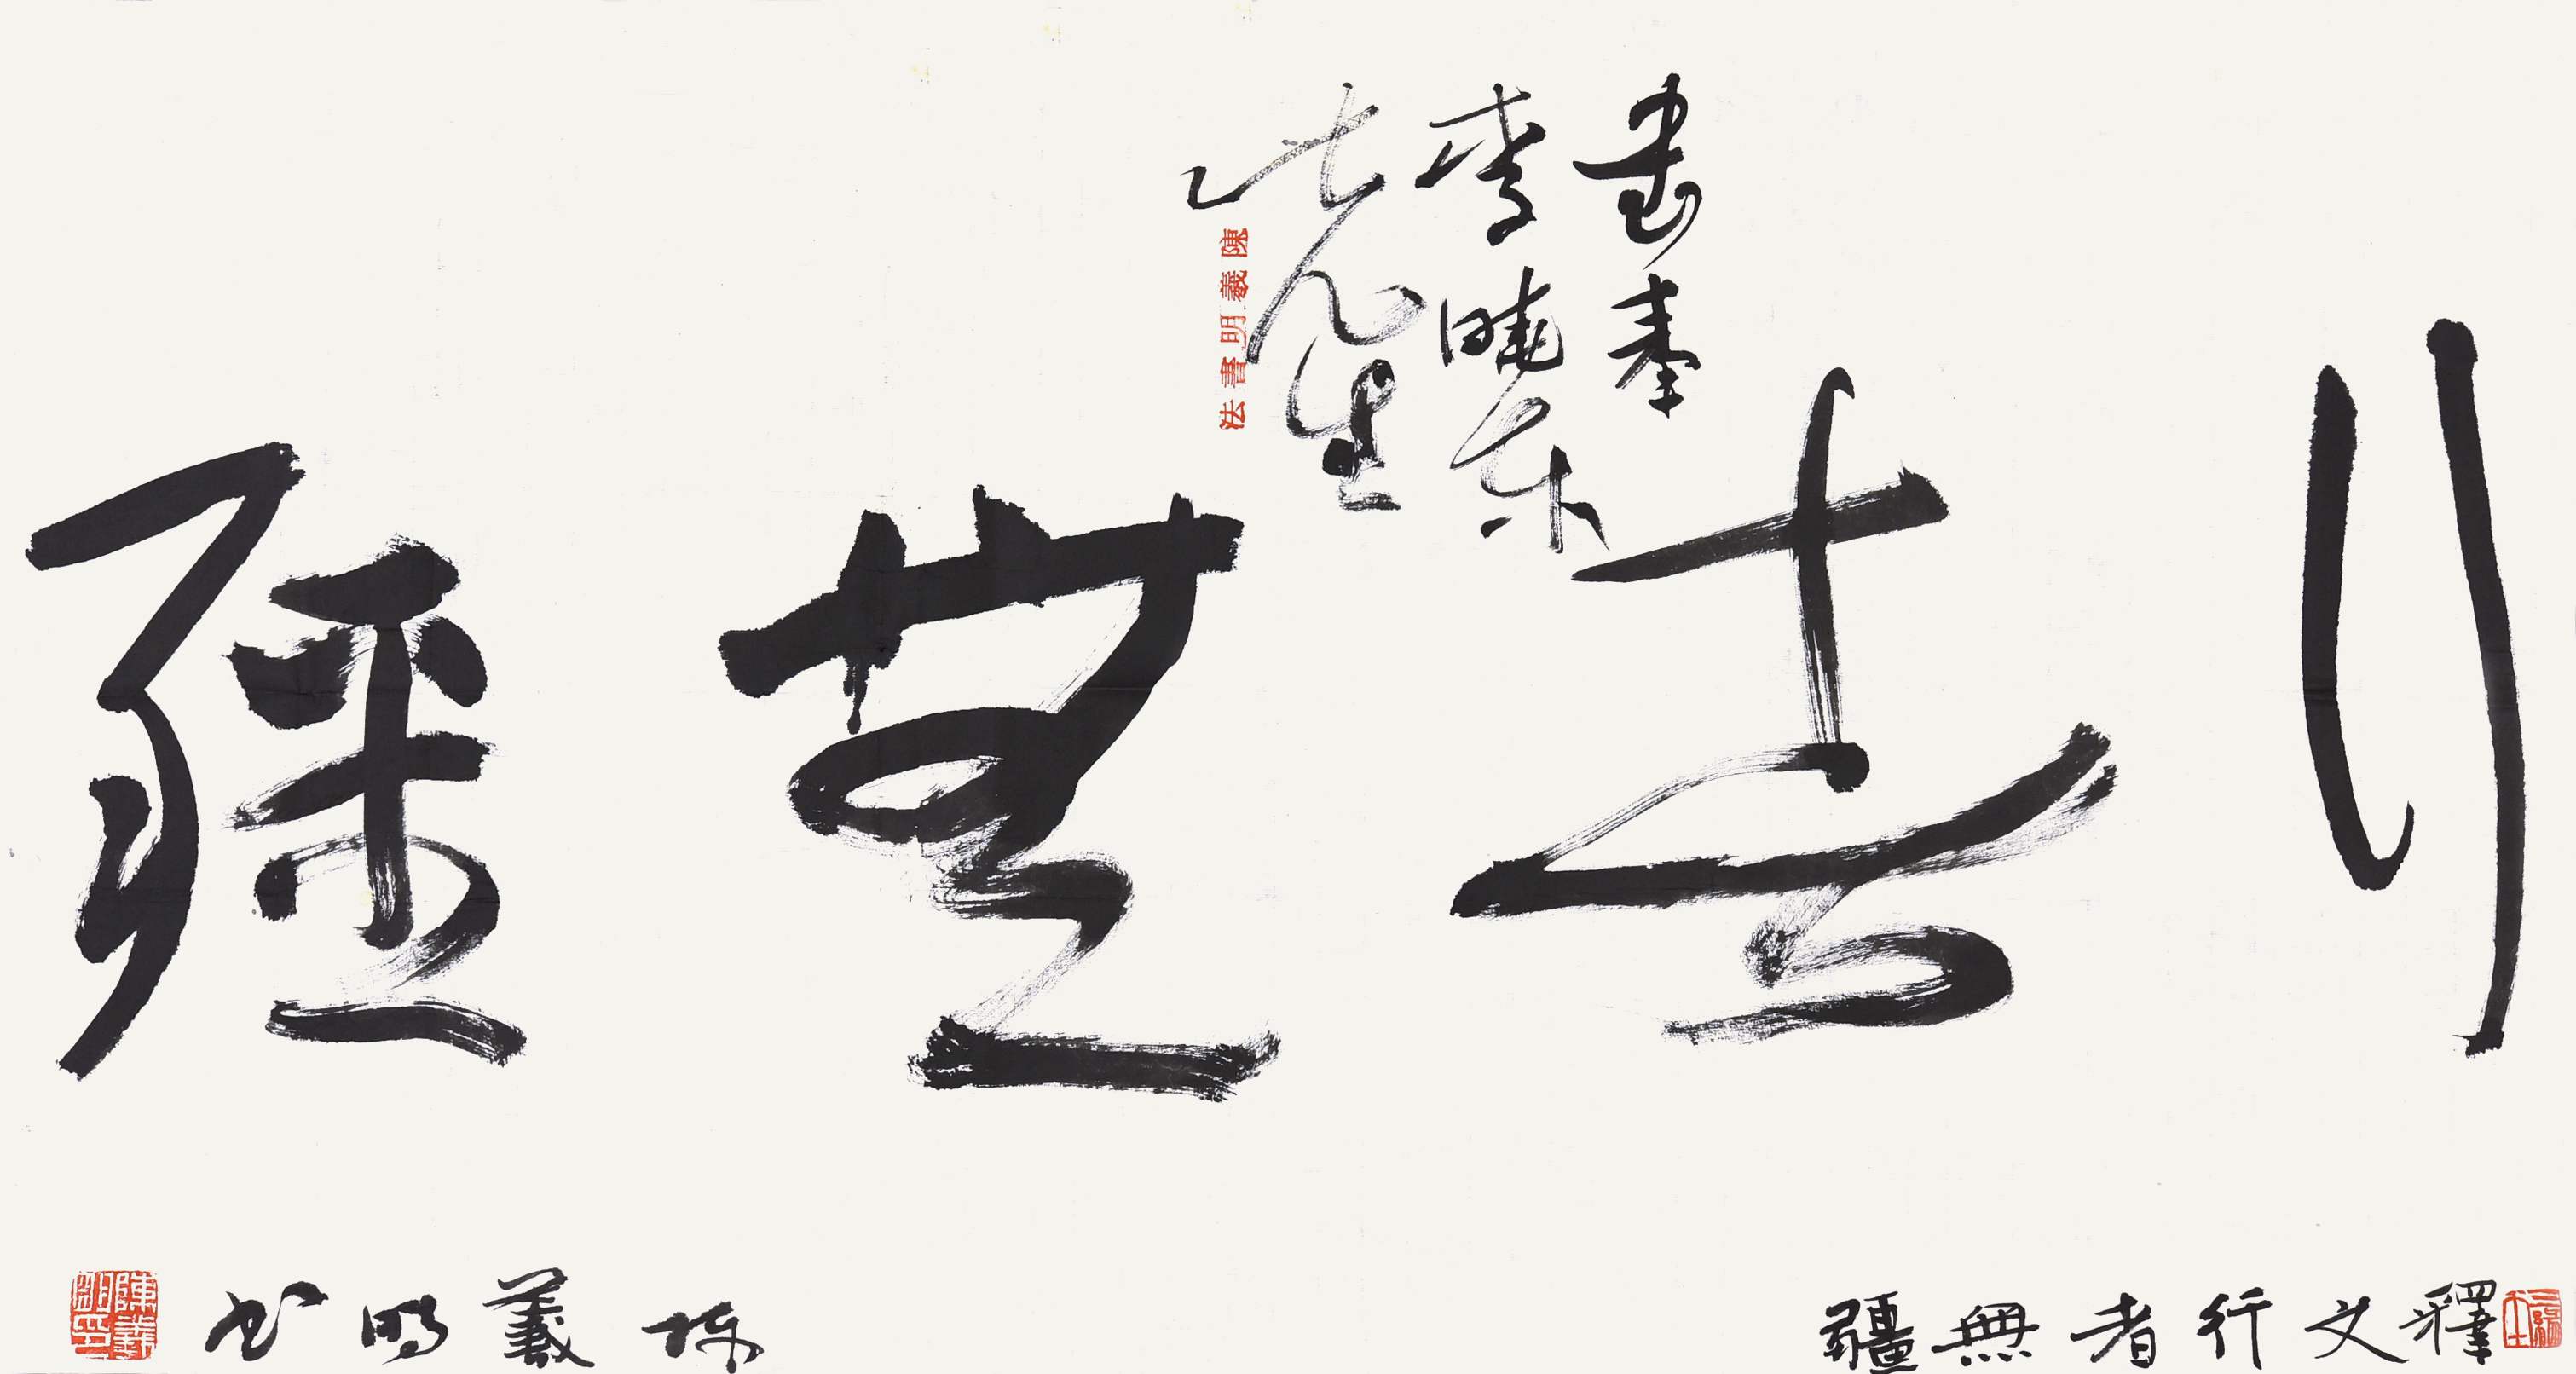 行者無疆
書奉
李曉東
先生
陳羲明書法
釋文行者無疆
陳羲明書
陳羲明印